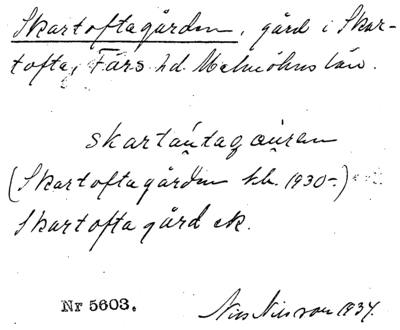 Skartoftagården, gård i Skar-
tofta, Färs hd. Malmöhus län.
skartåntagǫuren
(Skartoftagården kb. 1930-)
Skartofta gård ek.
Nr 5603. Nils Nilsson 1934.